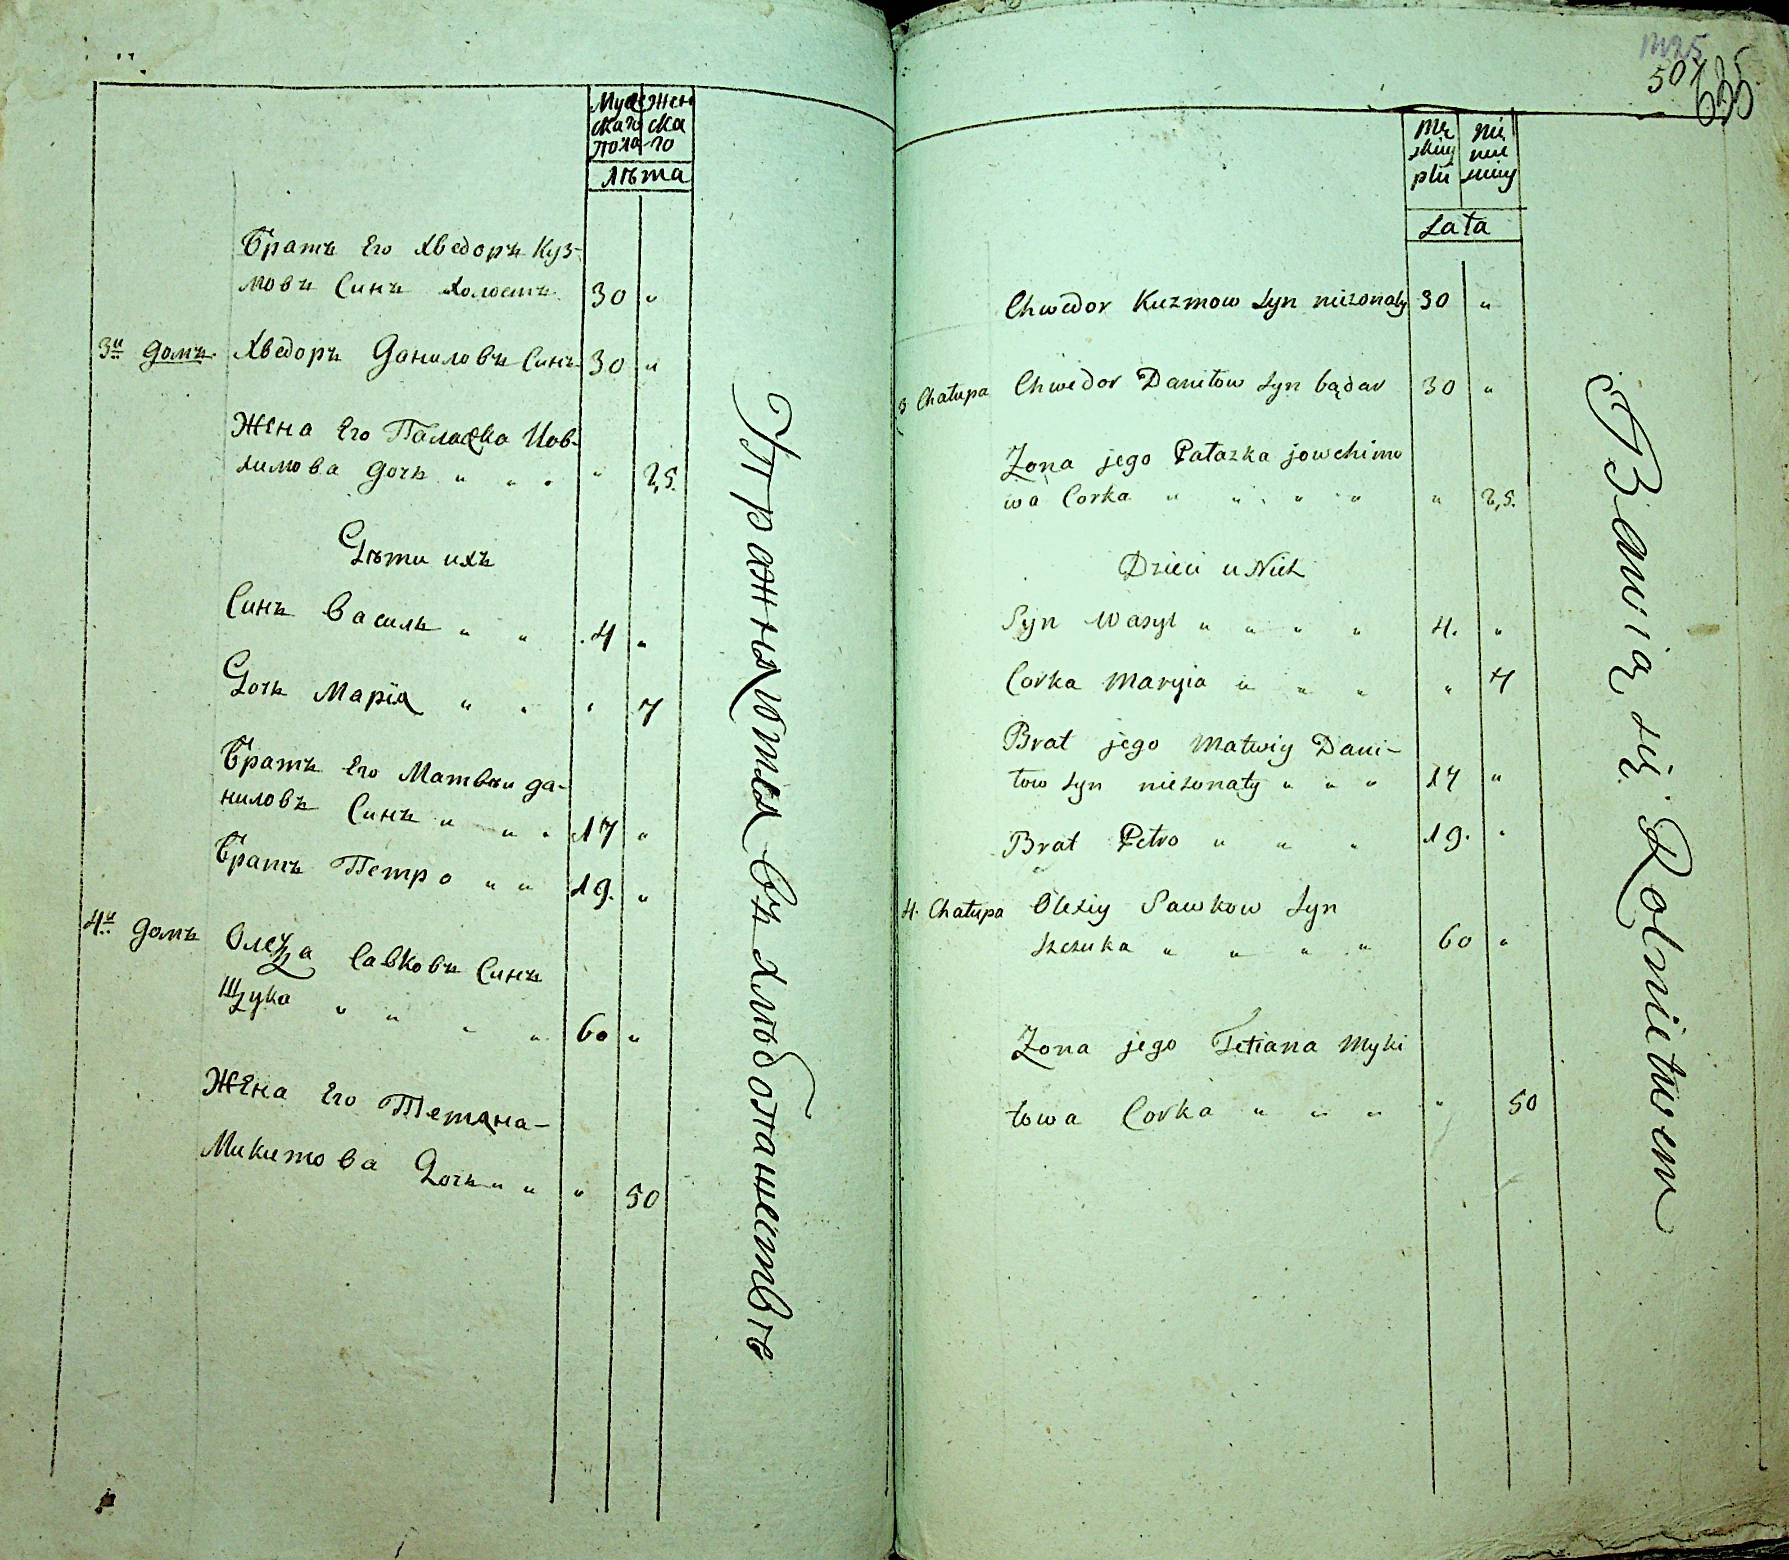 Мужe
Жен
скаго
ска
пола
го
лѣта
Братъ Его Хведоръ Куз-
мовъ Синъ холостъ 30 "
3й домъ. Хведоръ Даниловъ Синъ 30 "
Жена Его Палажка Иов-
химова Дочь " " " " 25.
Дѣти ихъ
Синъ Василь " " 4 "
Дочь Марія " " " 7
Братъ Его Матвѣи Да-
ниловъ Синъ " " " 17 "
Братъ Петро " " 19. "
4й домъ Олекса Савковъ Синъ
Щука " " " " 60 "
Жена Его Тетяна-
Микитова Дочь " " " 50
Упражняются въ хлѣбопашествѣ
507
635
Mę
skiey
płci
Lata
Chwedor Kuzmow Syn nieżonaty 30 "
3 Chałupa Chwedor Daniłow Syn bądar 30 "
Żona jego Pałazka jowchimo
wa Corka " " " " " 25.
Dzieci u Nich
Syn Wasyl " " " " 4. "
Corka Maryia " " " " 7
Brat jego Matwiy Dani-
łow Syn nieżonaty " " " 17 "
Brat Petro " " " 19. "
4. Chałupa Olexiy Sawkow Syn
Szczuka " " " " 60 "
Żona jego Tetiana Myki
towa Corka " " " " 50
Bawią się Rolnictwem